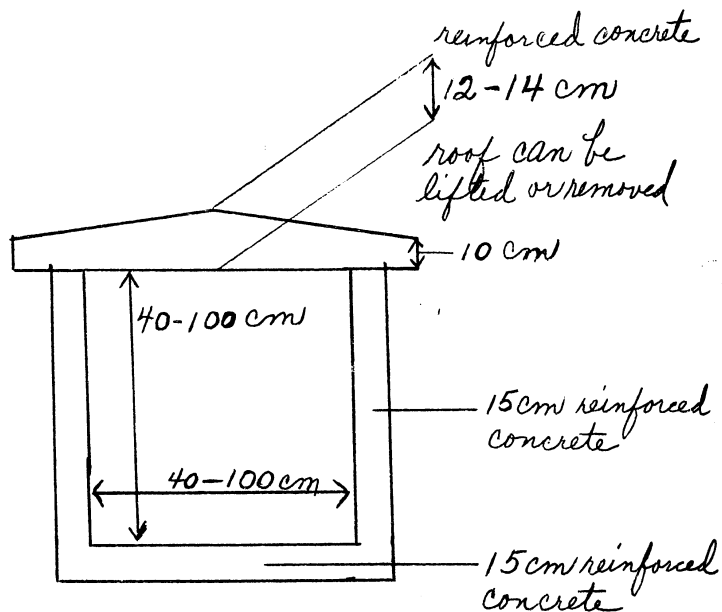 reinforced concrete
12-14 cm
roof can be
lifted or removed
10 cm
40-100 cm
15cm reinforced
concrete
40-100cm
15cm reinforced
concrete